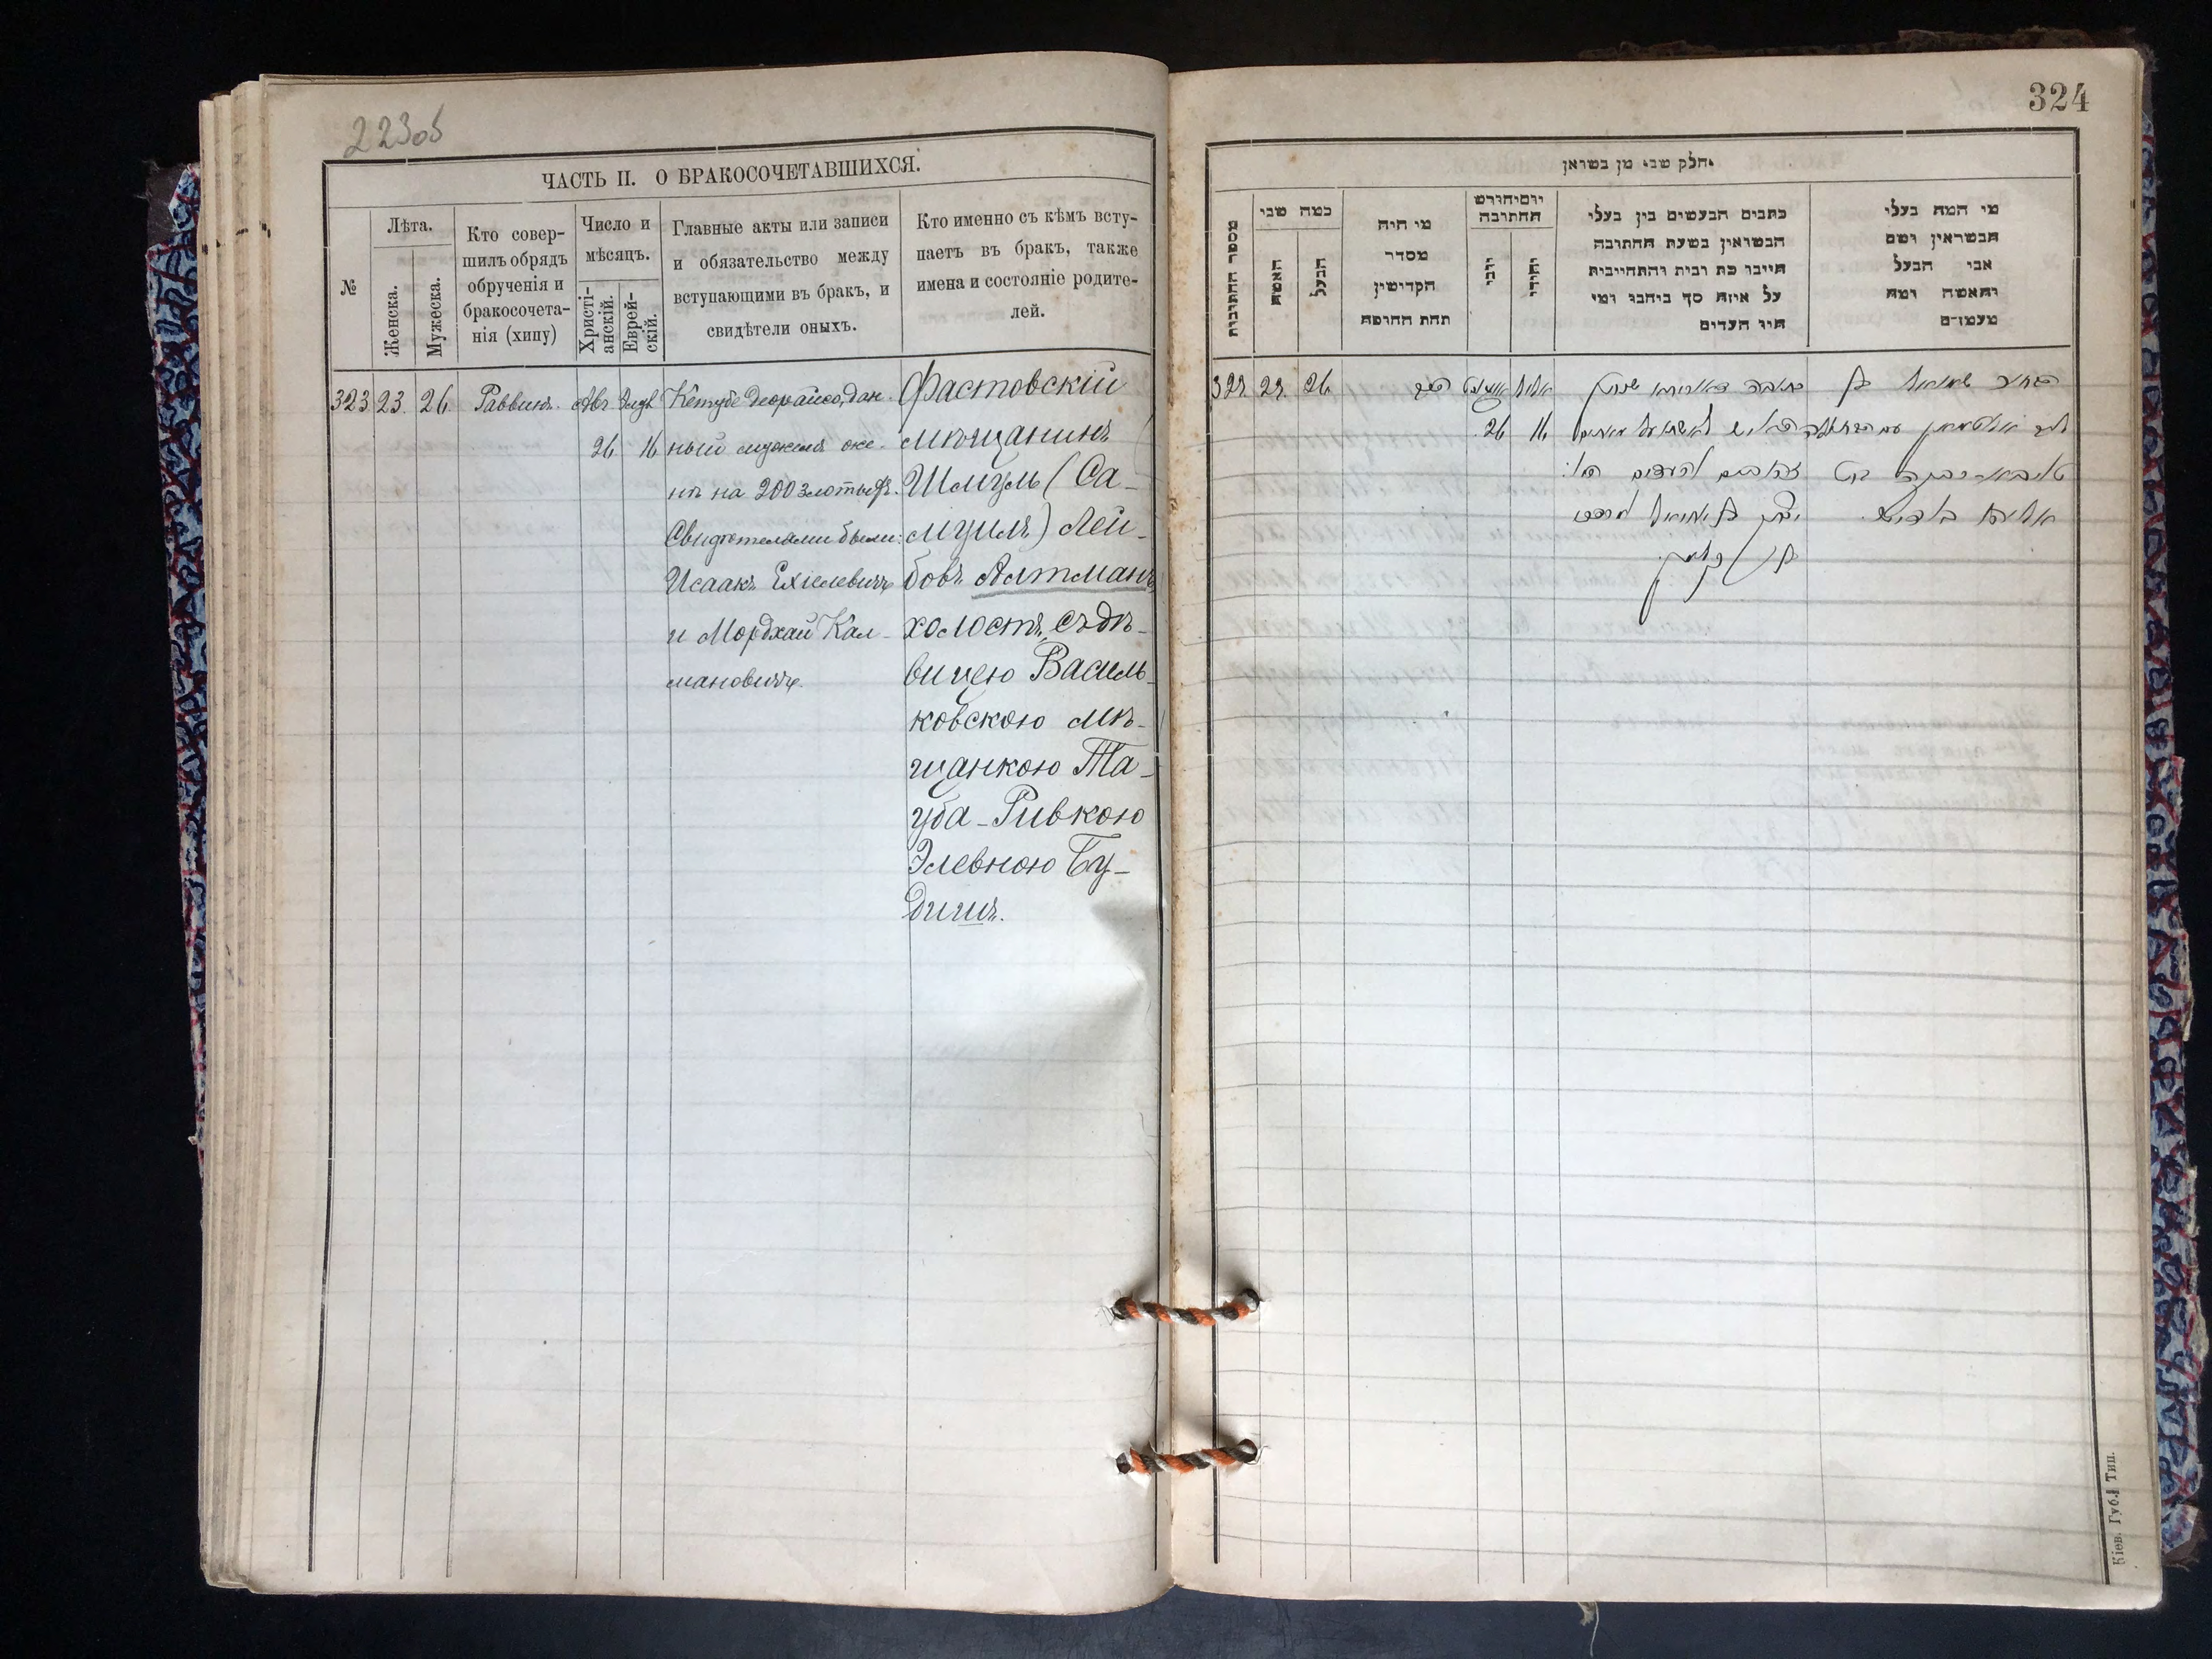 22305
ЧАСТЬ II. О БРАКОСОЧЕТАВШИХСЯ.
№
Лѣта.
Женска.
Мужеска.
Кто совер-
шилъ обрядъ
обрученія и
бракосочета-
нія (хипу)
Число и
мѣсяцъ.
Христі-
анскій.
Еврей-
скій.
Главные акты или записи
и обязательство между
вступающими въ бракъ, и
свидѣтели оныхъ.
Кто именно съ кѣмъ всту-
паетъ въ бракъ, также
имена и состояніе родите-
лей.
323 23. 26. Раввинъ. Авг
26 16
Кетубе деорайсо, дан-
ный мужемъ же-
нѣ на 200 злотыхъ.
Свидѣтелями были:
Исаакъ Ехіелевичъ
и Мордхай Кал-
мановичъ.
Фастовскій
мѣщанинъ
Шмуль (Са-
муилъ) Лей-
бовъ Алтманъ
холостъ, съ дѣ-
вицею Василь-
ковскою мѣ-
щанкою Та-
уба-Ривкою
Элевною Бу-
дишъ.
324
חלק שני מן נשואין
מספר החתונות
כמה שני
האשה
הבעל
מי היה
מסדר
הקדושין
תחת החופה
יום וחודש
החתונה
יוני
יהודי
כתבים הנעשים בין בעלי
הנשואין בשעת החתונה
על איזה סך ניתנו ומי
היו העדים
מי המה בעלי
הנשואין ושם
אבי הבעל
והאשה ומה
מעמדם
323. 23. 26. אלול
26 16
הבחור שמואל בן
כתובה דאורייתא
יצחק בן יחיאל
Кіев. Губ. Тип.